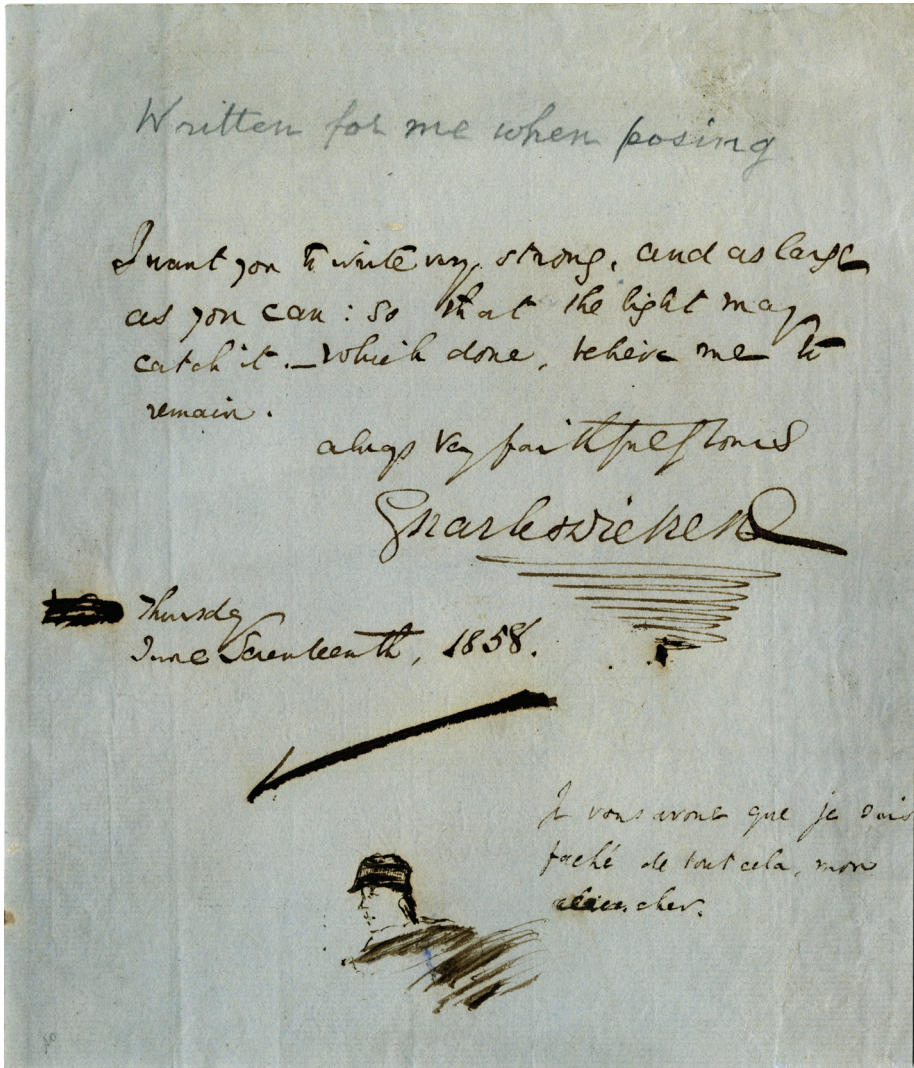 Written for me when posing
I want you to write very strong, and as large
as you can: so that the light may
catch it. _ Which done, believe me to
remain.
always very faithfully yours
Charles Dickens
Thursday
June Seventeenth, 1858.
Je vous avoue que je suis
faché de tout cela, mon
cher.